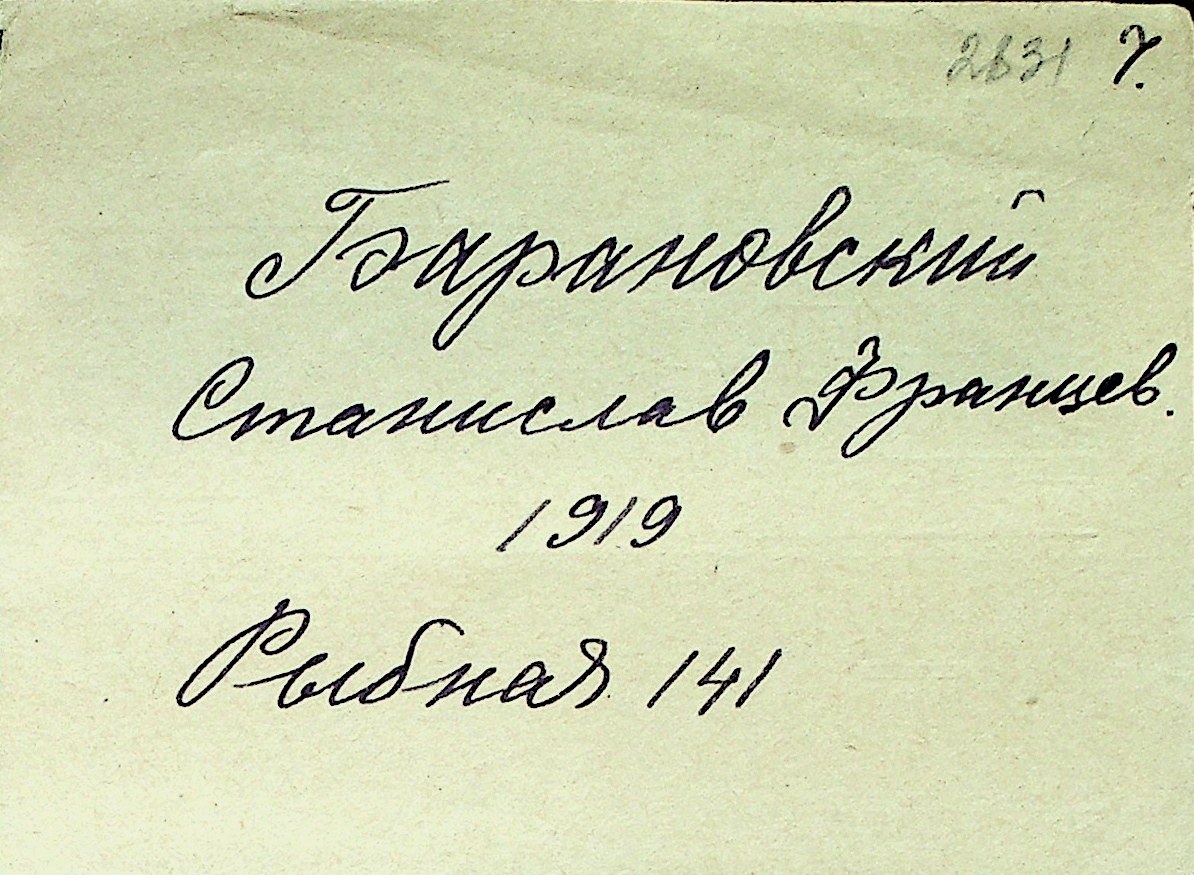 2631 7.
Барановский
Станислав Францев.
1919
Рыбная 141